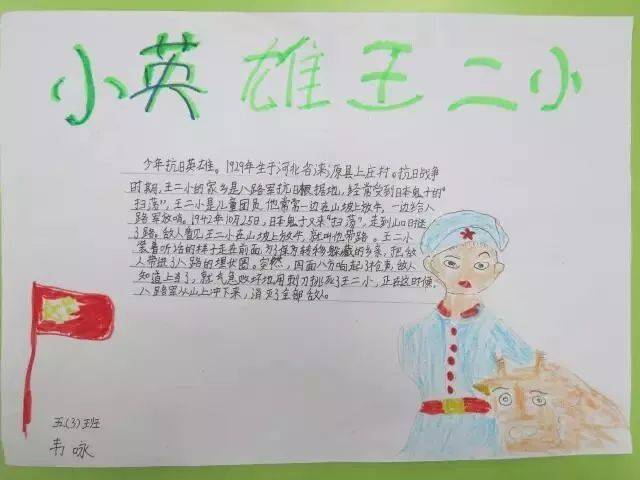 小英雄王二小
少年抗日英雄。1929年生于河北省涞源县上庄村。抗日战争
时期，王二小的家乡是八路军抗日根据地，经常受到日本鬼子的
"扫荡"，王二小是儿童团员，他常常一边在山坡上放牛，一边给八
路军放哨。1942年10月25日，日本鬼子又来"扫荡"，走到山口时迷
了路。敌人看见王二小在山坡上放牛，就叫他带路。王二小
装着听话的样子走在前面，为了保卫转移躲藏的乡亲，把敌
人带进了八路的埋伏圈。突然，四面八方响起了枪声，敌人
知道上当了，就气急败坏地用刺刀挑死了王二小，正在这时候，
八路军从山上冲下来，消灭了全部敌人。
五(3)班
韦咏